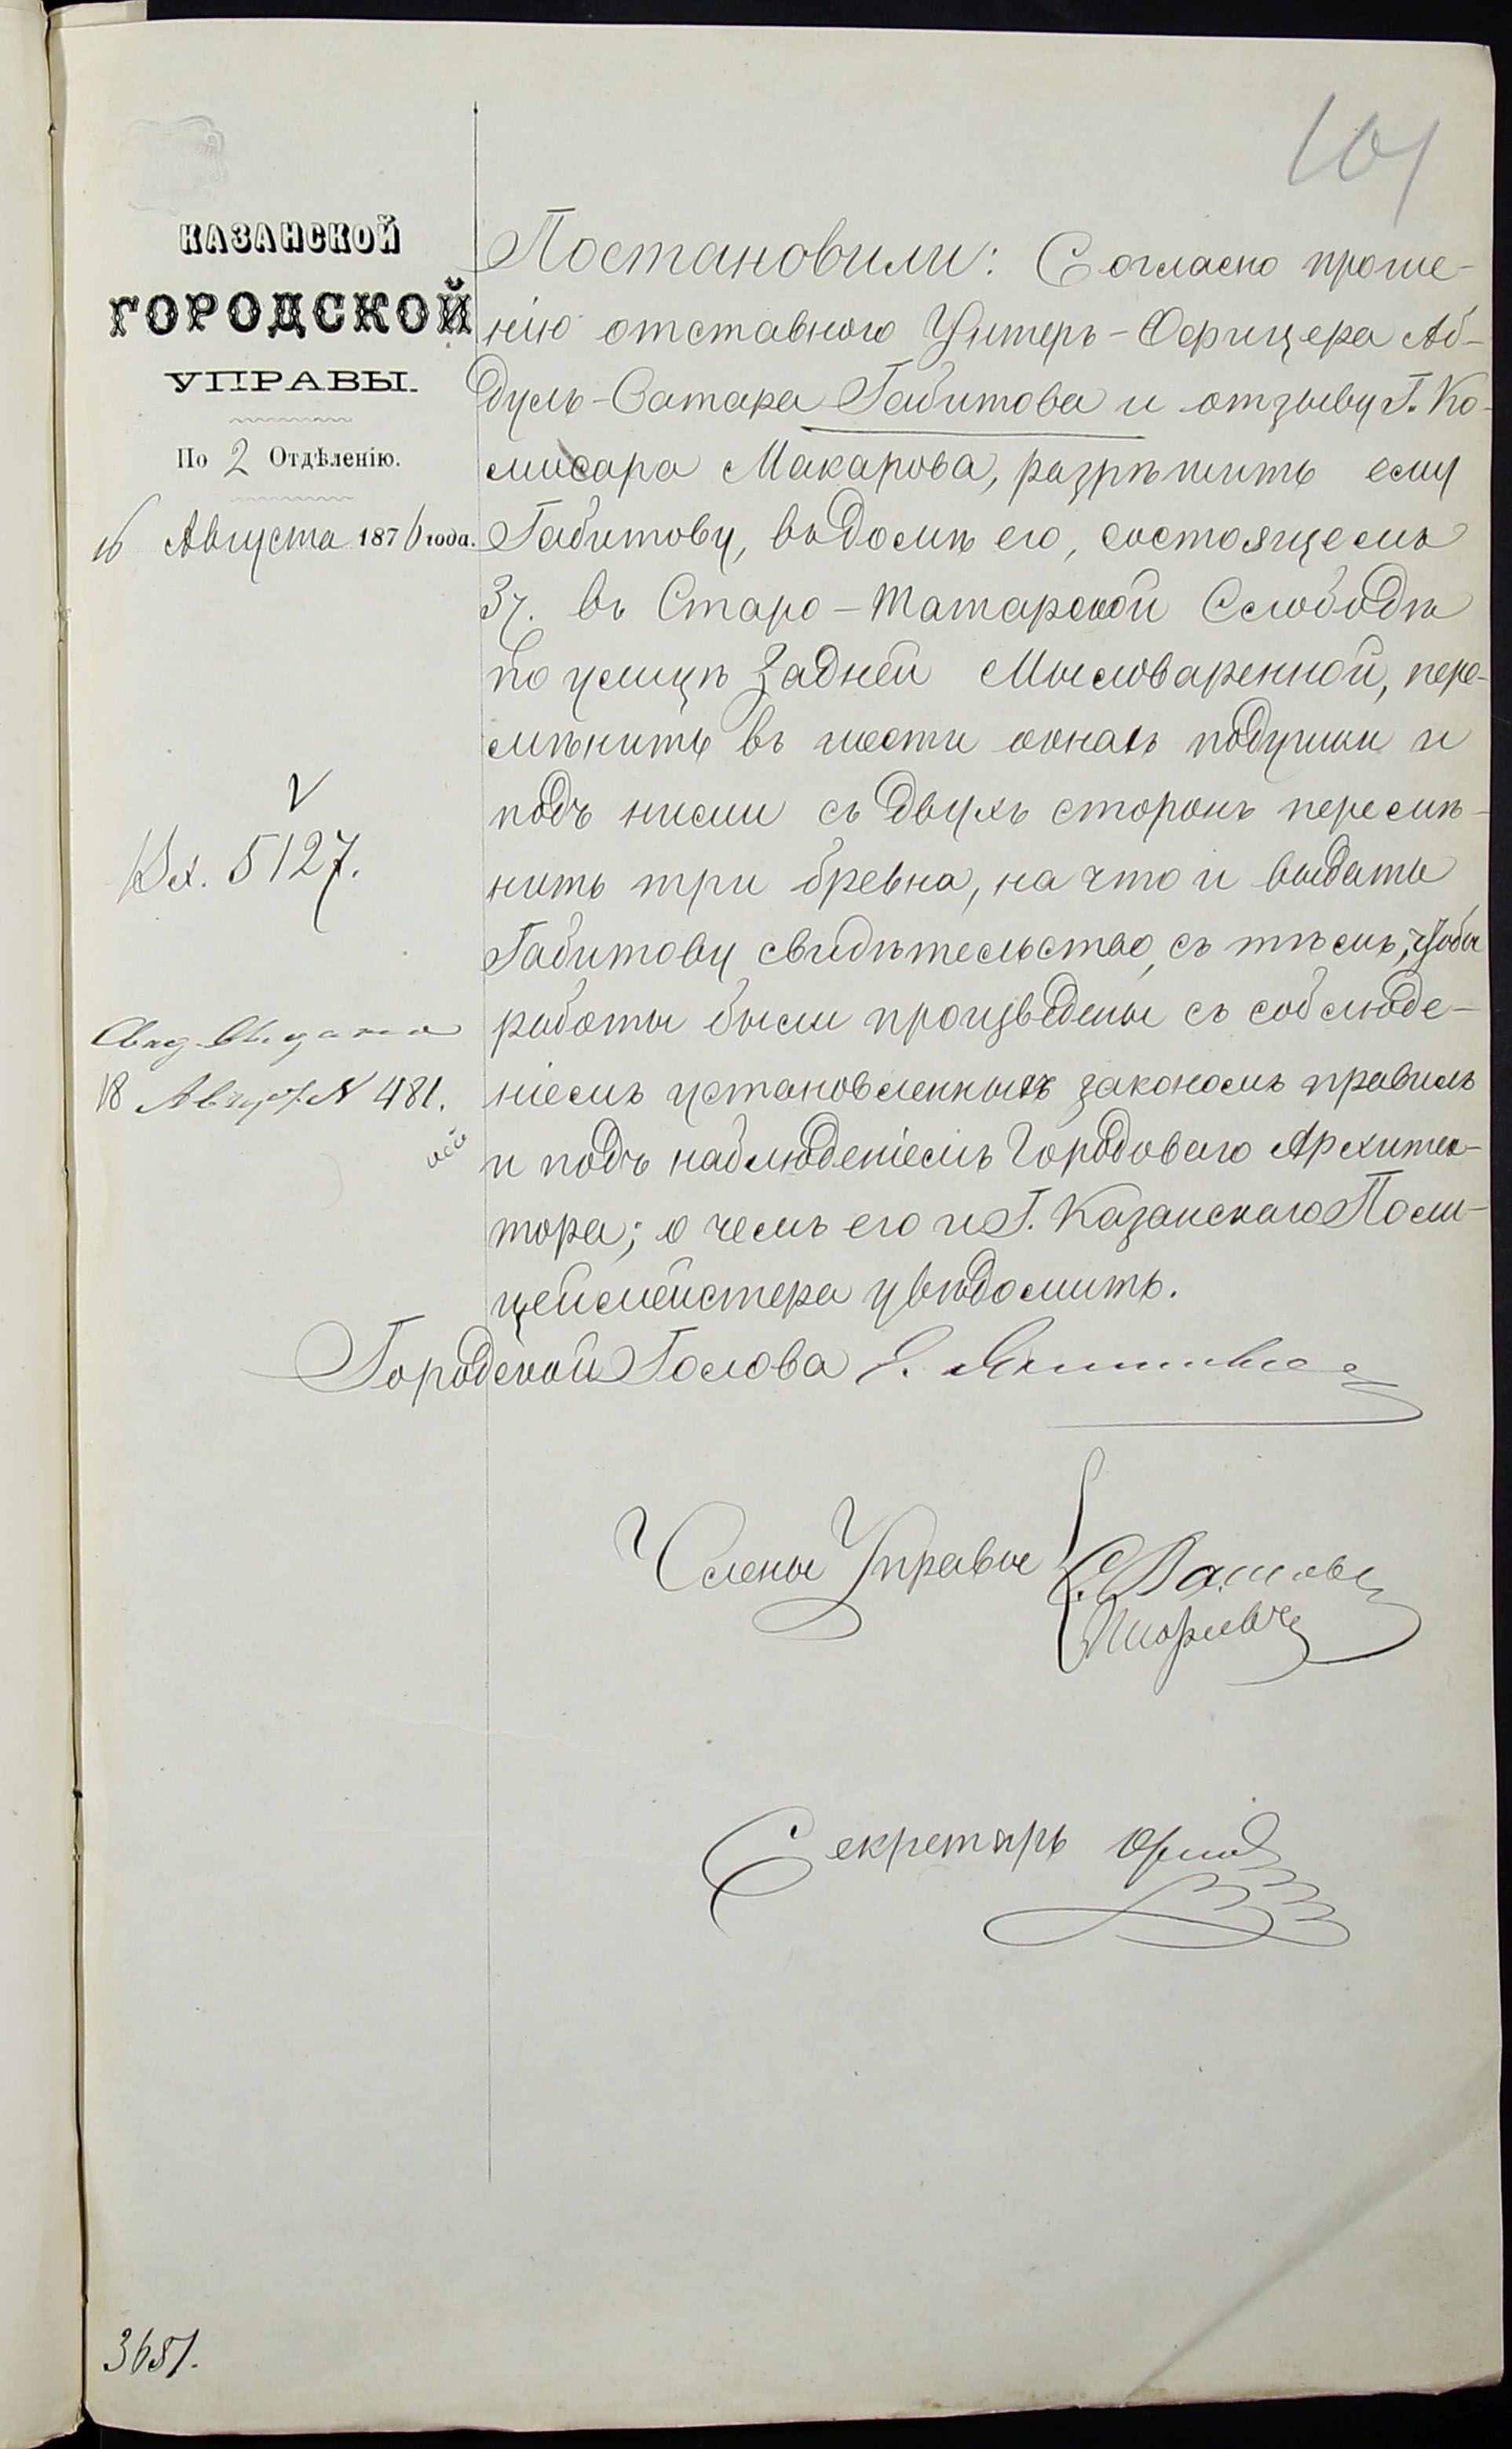 101
КАЗАНСКОЙ
ГОРОДСКОЙ
УПРАВЫ.
По 2 Отдѣленію.
16 Августа 1876 года.
Вх. 5127.
Свид. выдано
18 Август. N 481.
3651.
Постановили: Согласно проше-
нію отставного Унтеръ-Офицера Аб-
дулъ-Сатара Габитова и отзыву Г. Ко-
мисара Макарова, разрѣшить ему
Габитову, въ домѣ его, состоящемъ
3 ч. въ Старо-Татарской Слободѣ
по улицѣ Задней Мыловаренной, пере-
мѣнить въ шести окнахъ подушки и
подъ ними съ двухъ сторонъ перемѣ-
нить три бревна, на что и выдать
Габитову свидѣтельство, съ тѣмъ, чтобы
работы были произведены съ соблюде-
ніемъ установленныхъ закономъ правилъ
и подъ наблюденіемъ Городоваго Архитек-
тора; о чемъ его и Г. Казанскаго Поли-
цейсмейстера увѣдомить.
Городской Голова
Члены Управы
Секретарь